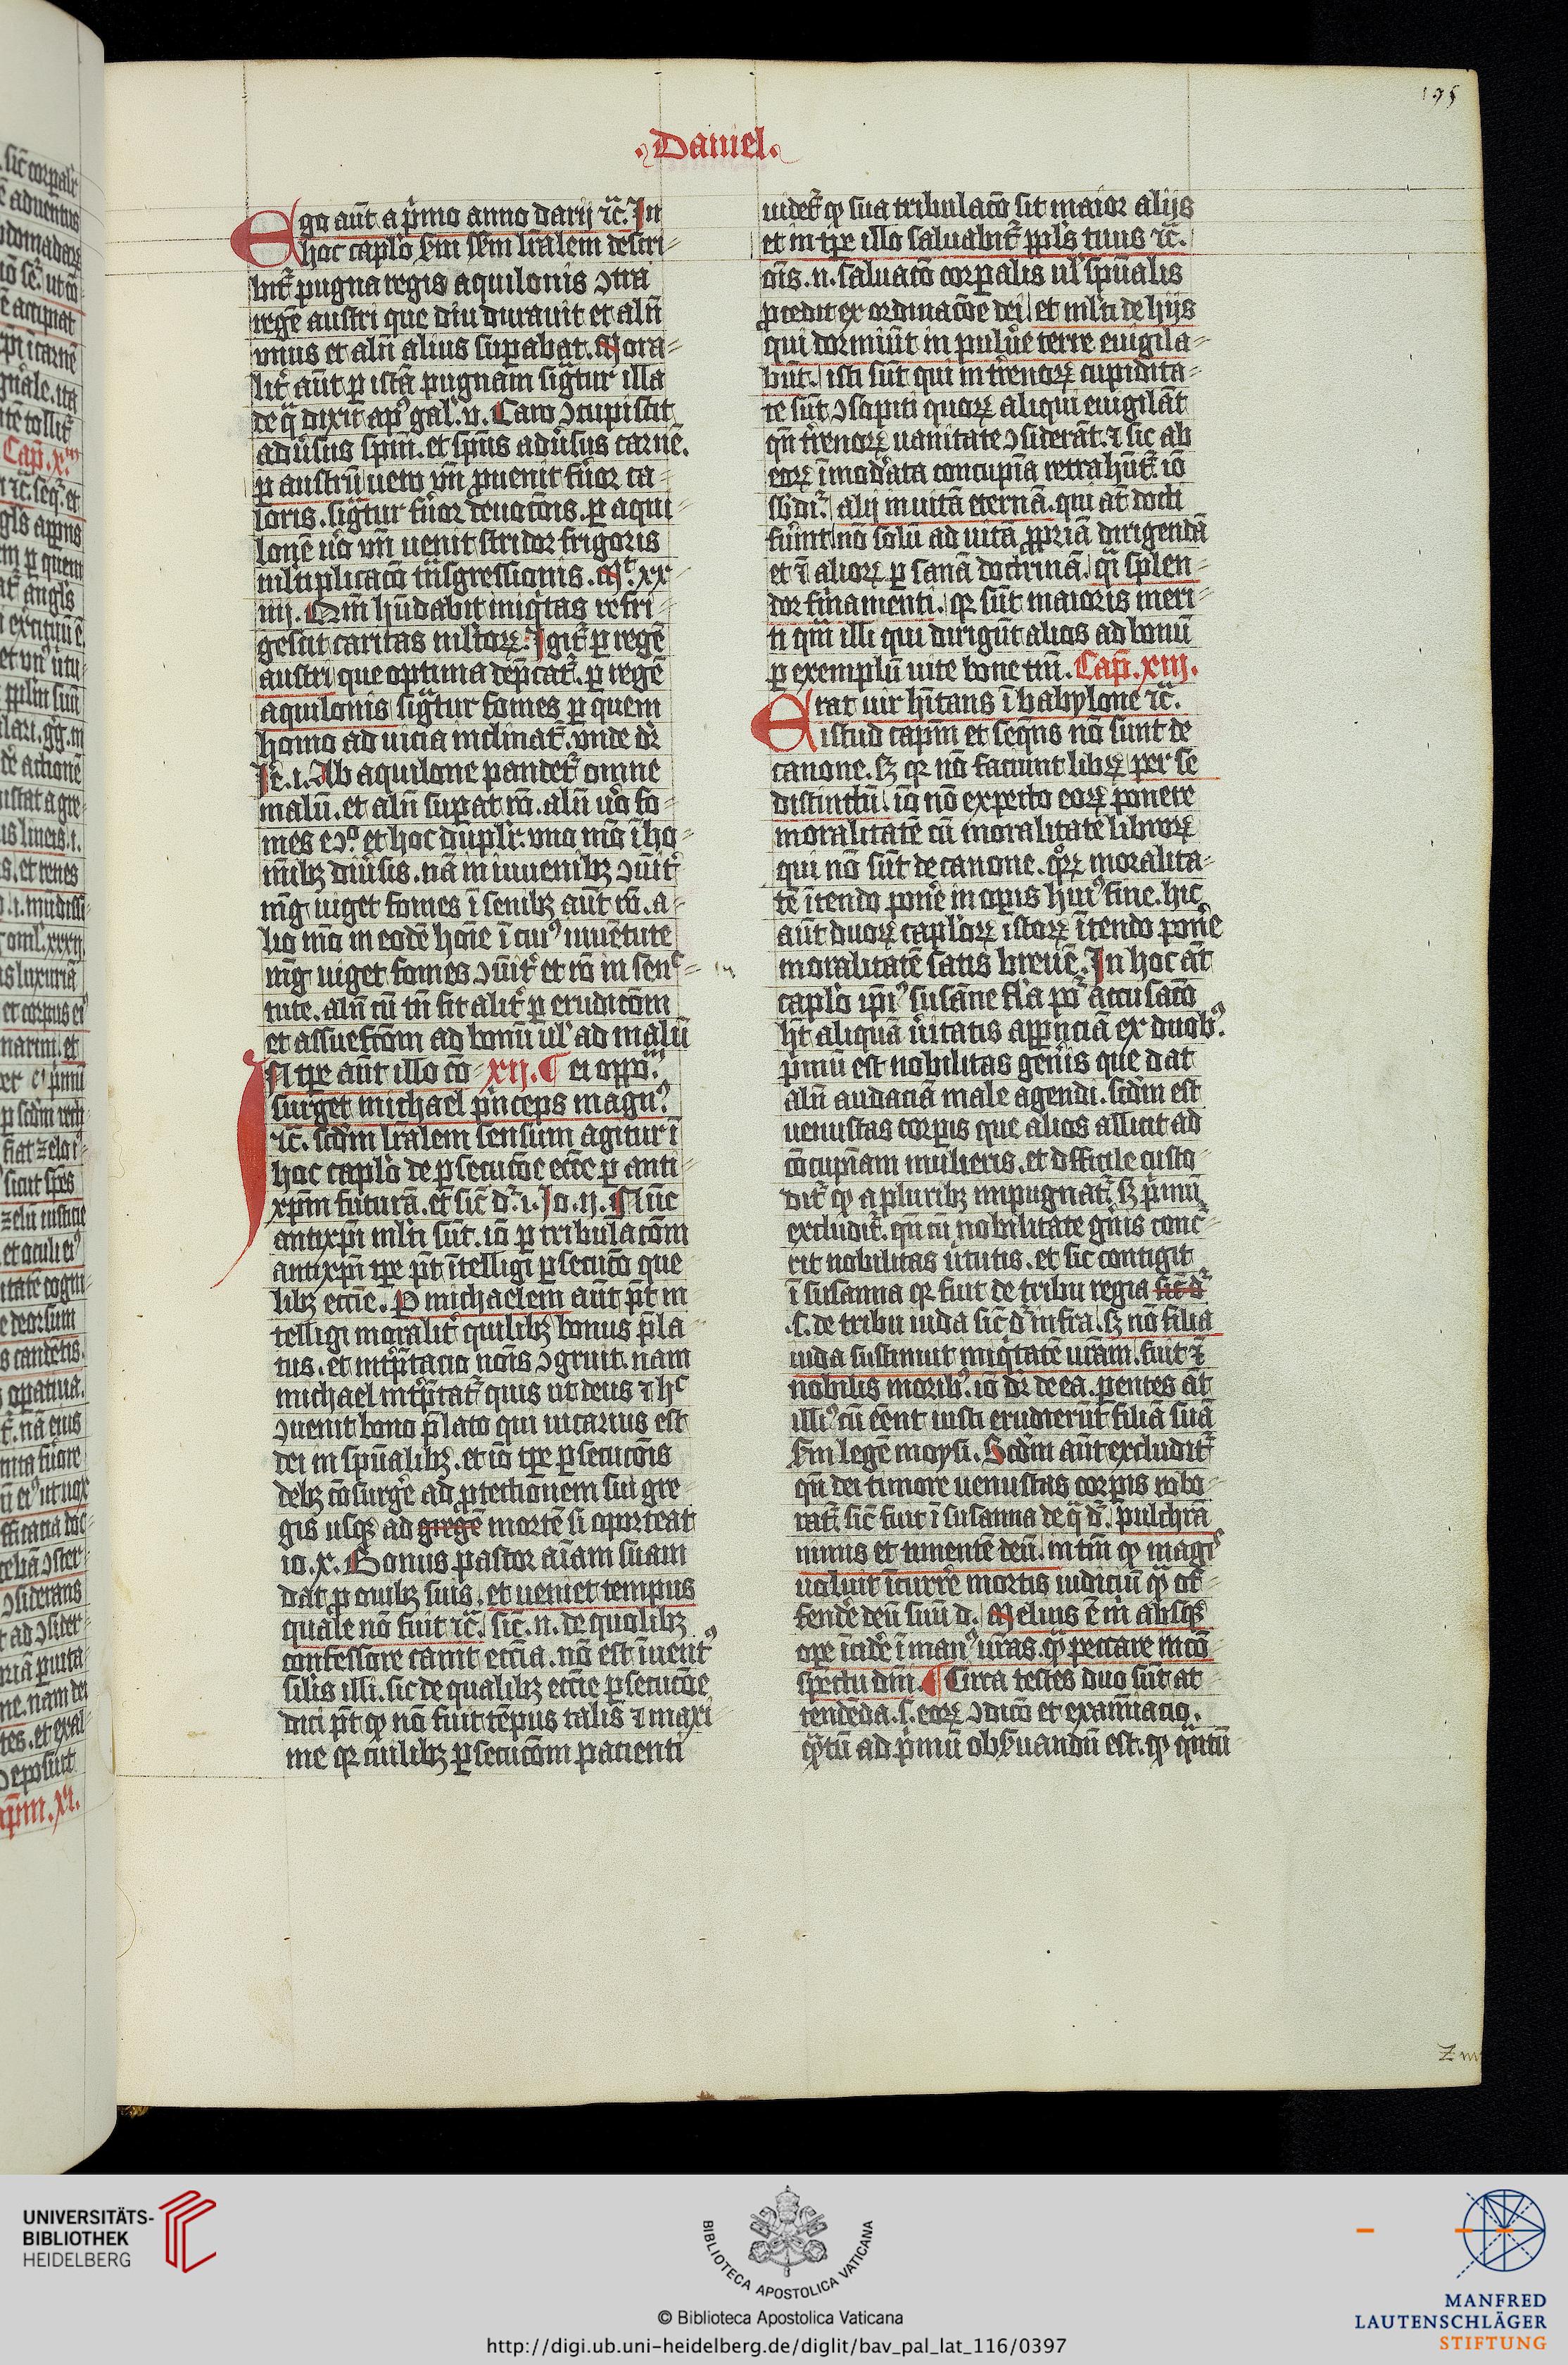 195
.Daniel.
Ego aūt a p̄mo anno darij ⁊c̄. In
hoc caplo s̄m s̄m lr̄alem descri-
bit̄ pugna regis aquilonis ꝯtra
regē austri que diu durauit et alīn
vnus et alīn alius sup̄abat. Mora-
lit̄ aūt ꝑ istā pugnam siḡtur illa
de q̄ dixit apꝰ gal. v. Caro ꝯcupiscit
adūsus spm̄. et spūs adūsus carnē.
ꝑ austrū uero vn̄ ꝓuenit feruor ca-
loris. siḡtur feruor deuotōis. ꝑ aqui-
lonē u̾o vn̄ uenit stridor frigoris
ml̄tiplicatō tn̄sgressionis. Mͭ. xx-
iiij. Qm̄ hūdabit iniq̄tas refri-
gescit caritas ml̄torꝝ. Igit̄ ꝑ regē
austri que optima dep̄cat̄. ꝑ regē
aquilonis siḡtur fomes ꝑ quem
homo ad uicia inclinat̄. vnde dr̄
Je. i. Ab aquilone pandet̄ omne
malū. et alīn sup̄at rō. alīn u̾o fo-
mes eꝯͦ. et hoc duplr̄. vno mō ī ho-
mībꝫ diūsis. nā in iuuenibꝫ ꝯūit̄
mḡ uiget fomes ī senibꝫ aūt rō. a-
lio mō in eodē hoīe ī cuiꝰ iuuētute
mḡ uiget fomes ꝯūit̄ et rō in senc-
tute. alīn cū tn̄ fit alit̄ ꝑ eruditōm
et assuefcōm ad bonū ul̾ ad malū
In tp̄e aūt illo cō- xij. ¶ ei oppōᵐ
surget michael p̄nceps magnꝰ
⁊c̄. scd̄m lr̄alem sensum agitur ī
hoc caplo de ꝑsecutōe ecc̄e ꝑ anti-
xp̄m futurā. et sic̄ dr̄. i. Jo. ij. Nūc
antixp̄i ml̄ti sūt. iō ꝑ tribulatōm
antixp̄i tp̄e pt̄ ītelligi ꝑsecutō que
libꝫ ecc̄ie. P michaelem aūt pt̄ in
telligi moralit̄ quilibꝫ bonus p̄la-
tus. et int̾p̄tacio noīs ꝯgruit. nam
michael int̾p̄tat̄ quis ut deus ⁊ hͨ
ꝯuenit bono p̄lato qui uicarius est
dei in spūalibꝫ. et iō tp̄e ꝑsecutōis
debꝫ cōsurge̾ ad ꝓtectionem sui gre-
gis usqꝫ ad gregē mortē si oporteat
io. x. Bonus pastor aīam suam
dat ꝓ ouibꝫ suis. et ueniet tempus
quale nō fuit ⁊c̄. sic̄. n. de quolibꝫ
confessore canit ecc̄ia. nō est īuentꝰ
silis illi. sic de qualibꝫ ecc̄ie ꝑsecutōe
dici pt̄ ꝙ nō fuit tēpus talis ⁊ maxi-
me qꝛ cuilibꝫ ꝑsecutōm patienti
uidet̄ ꝙ sua tribulatō sit maior alijs
et in tp̄e illo saluabit̄ pp̄ls tuus ⁊c̄.
oīs. n. saluatō corꝑalis ul̾ spūalis
ꝓcedit ex ordinatōe dei. et ml̄ti de hijs
qui dormiūt in pulue̾ terre euigila-
būt. isti sūt qui in tr̄enorꝝ cupidita-
te sūt ꝯsopiti quorꝝ aliqui euigilāt
qn̄ tr̄enorꝝ uanitatē ꝯsiderāt. ⁊ sic ab
eorꝝ īmode̾ata concupīa retrahūt̄. iō
sb̄di. alij in uitā eternā. qui at̄ docti
fūint nō solū ad uitā ꝓpriā dirigendā
et ī aliorꝝ ꝑ sanā doctrinā. q̄i splen-
dor firmamenti. qꝛ sūt maioris meri-
ti qm̄ illi qui dirigūt alios ad bonū
ꝑ exemplū uite bone tm̄. Cap̄. xiij.
Erat uir hītans ī babylone ⁊c̄.
istud capm̄ et seqn̄s nō sunt de
canone. sꝫ qꝛ nō faciunt librꝫ per se
distinctū. iō nō expecto eorꝝ ponere
moralitatē cū moralitate librorꝝ
qui nō sūt de canone. quorꝝ moralita-
tē ītendo pone̾ in opis huiꝰ fine. hic
aūt duorꝝ caplorꝝ istorꝝ ītendo pone̾
moralitatē satis breuē. In hoc at̄
caplo ip̄iꝰ susāne fl̄a pꝰ accusatō
hꝫ aliquā uitatis appn̄ciā ex duobꝰ.
p̄mū est nobilitas gene̾is que dat
alīn audaciā male agendi. scd̄m est
uenustas corꝑis que alios allicit ad
cōcupīam mulieris. et difficile custo-
dit̄ ꝙ a pluribꝫ impugnat̄. sꝫ p̄mū
excludit̄. qn̄ cū nobilitate gn̄is conc̄-
rit nobilitas uirtutis. et sic contigit
ī susanna qꝛ fuit de tribu regia sic̄ dr̄
.s. de tribu iuda sic̄ dr̄ infra. sꝫ nō filia
iuda sustinuit iniq̄tatē ur̄am. fuit ⁊
nobilis moribꝰ. iō dr̄ de ea. ꝑentes at̄
illiꝰ cū eēnt iusti erudierūt filiā suā
s̄m legē moysi. Scd̄m aūt excludit̄
qn̄ dei timore uenustas corꝑis robo-
rat̄. sic̄ fuit ī susanna de q̄ dr̄. pulchrā
nimis et timentē deū. in tm̄ ꝙ magꝭ
uoluit īcurre̾ mortis iudiciū qꝫ of-
fende̾ deū suū d. Melius ē m̄ absqꝫ
ope īcide̾ ī manꝰ ur̄as. qꝫ peccare in cō-
spectu dn̄i. ¶ Circa testes duo sūt at-
tendēda. s. eorꝝ ꝯditō et examīacio.
q̄tū ad p̄mū obs̾uandū est. ꝙ qn̄tū
UNIVERSITÄTS-
BIBLIOTHEK
HEIDELBERG
BIBLIOTECA APOSTOLICA VATICANA
© Biblioteca Apostolica Vaticana
http://digi.ub.uni-heidelberg.de/diglit/bav_pal_lat_116/0397
MANFRED
LAUTENSCHLÄGER
STIFTUNG